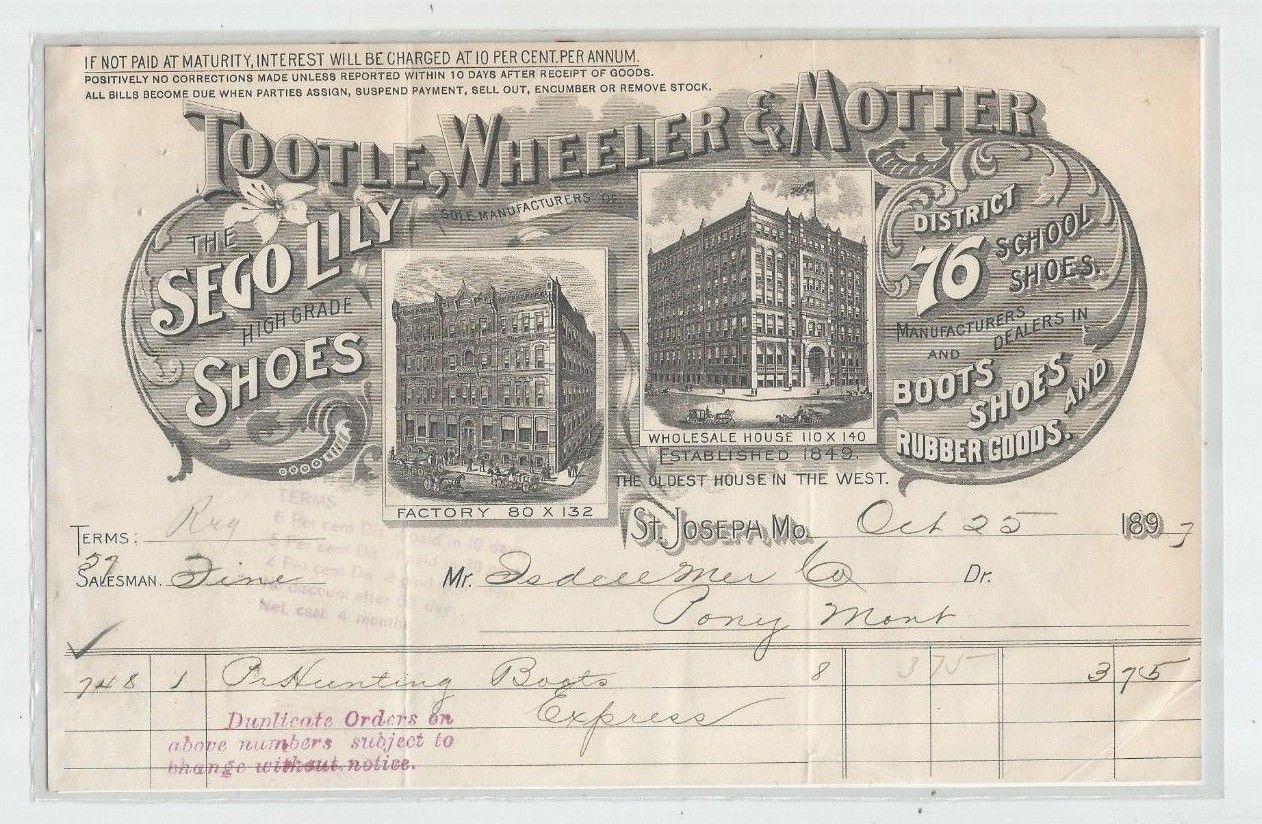 IF NOT PAID AT MATURITY, INTEREST WILL BE CHARGED AT 10 PER CENT. PER ANNUM.
POSITIVELY NO CORRECTIONS MADE UNLESS REPORTED WITHIN 10 DAYS AFTER RECEIPT OF GOODS.
ALL BILLS BECOME DUE WHEN PARTIES ASSIGN, SUSPEND PAYMENT, SELL OUT, ENCUMBER OR REMOVE STOCK.
TOOTLE, WHEELER & MOTTER
SOLE MANUFACTURERS OF
THE
SEGO LILY
HIGH GRADE
SHOES
FACTORY 80 X 132
WHOLESALE HOUSE 110 X 140
ESTABLISHED 1849.
THE OLDEST HOUSE IN THE WEST.
DISTRICT
76 SCHOOL
SHOES.
MANUFACTURERS
AND DEALERS IN
BOOTS
SHOES AND
RUBBER GOODS.
ST. JOSEPH, MO. Oct 25 1897
TERMS: Reg
TERMS
6 Per cent Dis. if paid in 10 days
5 Per cent Dis. if paid
4 Per cent Dis. if paid days.
No discount after 60 days.
Net cash 4 months
57
SALESMAN. Fine
Mr. Isdell Mer Co Dr.
Pony Mont
748 1 Pr Hunting Boots 8 375 3 75
Express
Duplicate Orders on
above numbers subject to
change without notice.